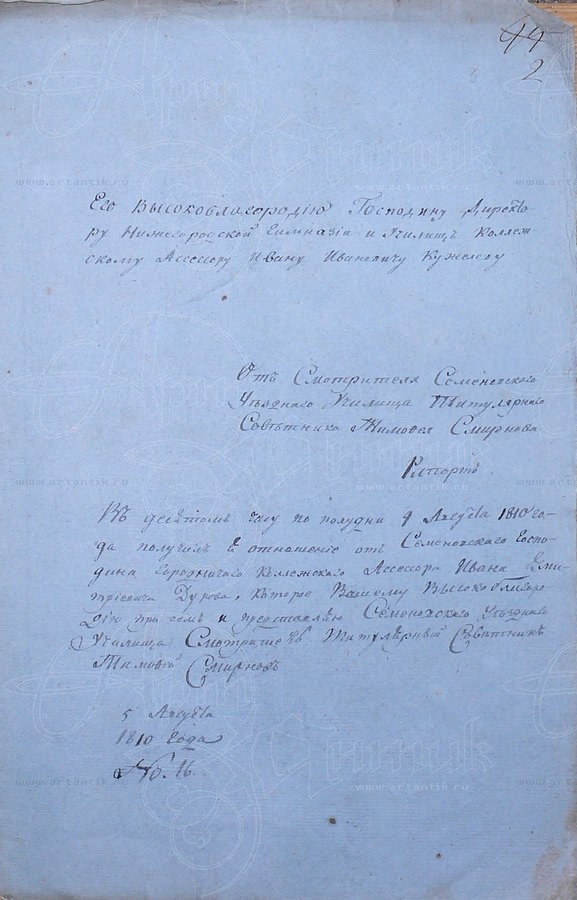 44
2
Его Высокоблагородію Господину Директо
ру Нижегородской Гимназіи и Училищъ Коллеж
скому Ассесору Ивану Ивановичу Кужелеву
Отъ Смотрителя Семеновскаго
Уѣзднаго Училища Титулярнаго
Совѣтника Тимофея Смирнова
Рапортъ
Въ десятомъ часу по полудни 4 Августа 1810 го-
да получилъ я отношеніе отъ Семеновскаго Госпо-
дина Городничаго Коллежскаго Ассесора Ивана Дми
тріевича Дурова, которое Вашему Высокоблагоро
дію при семъ и представляю Семеновскаго Уѣзднаго
Училища Смотритель Титулярный Совѣтникъ
Тимофей Смирновъ
5 Августа
1810 года
No. 16.